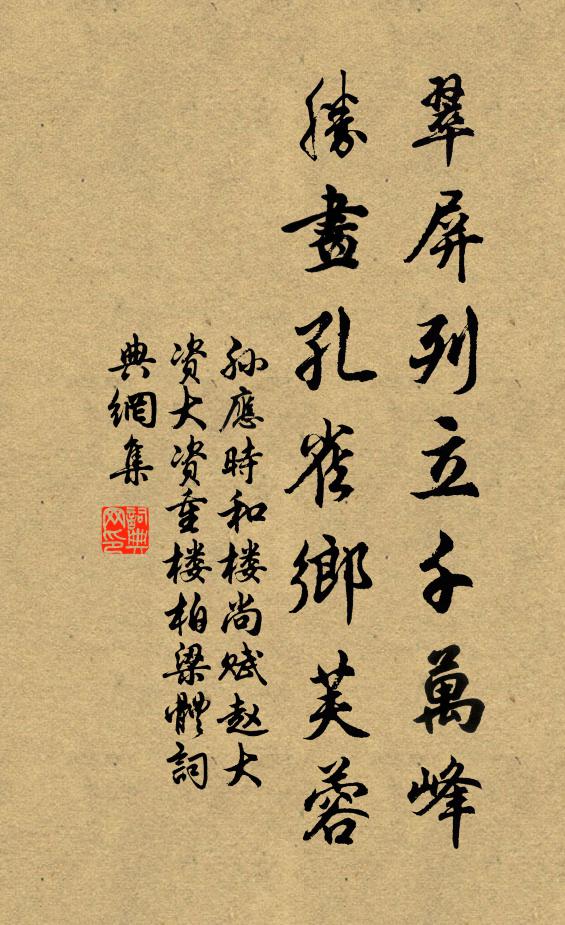 翠屏列立千萬峰
勝畫孔雀鄉芙蓉
孙應時和楼尚赋赵大
资大资重楼柏梁體詞
典網集
詞典
网印